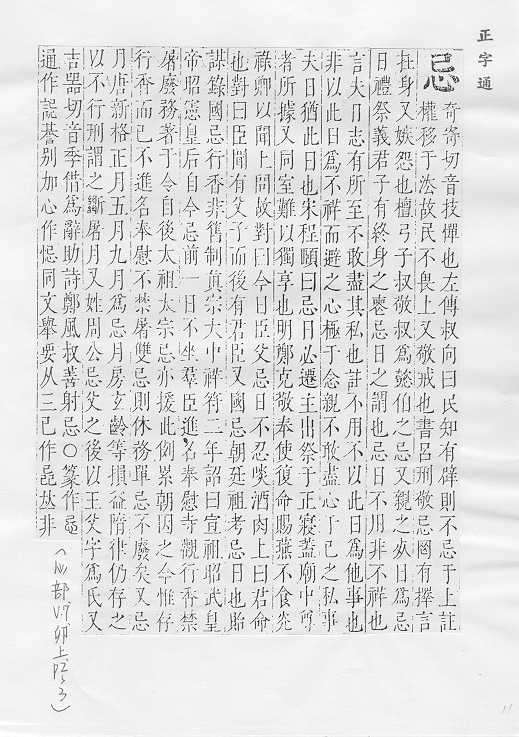 正字通
忌
奇寄切音技憚也左傳叔向曰民知有辟則不忌于上註
權移于法故民不畏上又敬戒也書呂刑敬忌罔有擇言
在身又嫉怨也檀弓子叔敬叔爲懿伯之忌又親之歿日爲忌
日禮祭義君子有終身之喪忌日之謂也忌日不用非不祥也
言夫日志有所至不敢盡其私也註不用不以此日爲他事也
非以此日爲不祥而避之心極于念親不敢盡心于己之私事
夫日猶此日也宋程頤曰忌日必遷主出祭于正寢蓋廟中尊
者所據又同室難以獨享也明鄭克敬奉使復命賜燕不食光
祿卿以聞上問故對曰今日臣父忌日不忍啖酒肉上曰君命
也對曰臣聞有父子而後有君臣又國忌朝廷祖考忌日也貽
謀錄國忌行香非舊制眞宗大中祥符二年詔曰宣祖昭武皇
帝昭憲皇后自今忌前一日不坐羣臣進名奉慰寺觀行香禁
屠廢務著于令自後太祖太宗忌亦援此例累朝因之今惟存
行香而已不進名奉慰不禁屠雙忌則休務單忌不廢矣又忌
月唐新格正月五月九月爲忌月房玄齡等損益隋律仍存之
以不行刑謂之斷屠月又姓周公忌父之後以王父字爲氏又
吉器切音季借爲辭助詩鄭風叔善射忌○篆作
通作誋諅别加心作惎同文舉要从三己作 �夶非
(心部 卯上 )